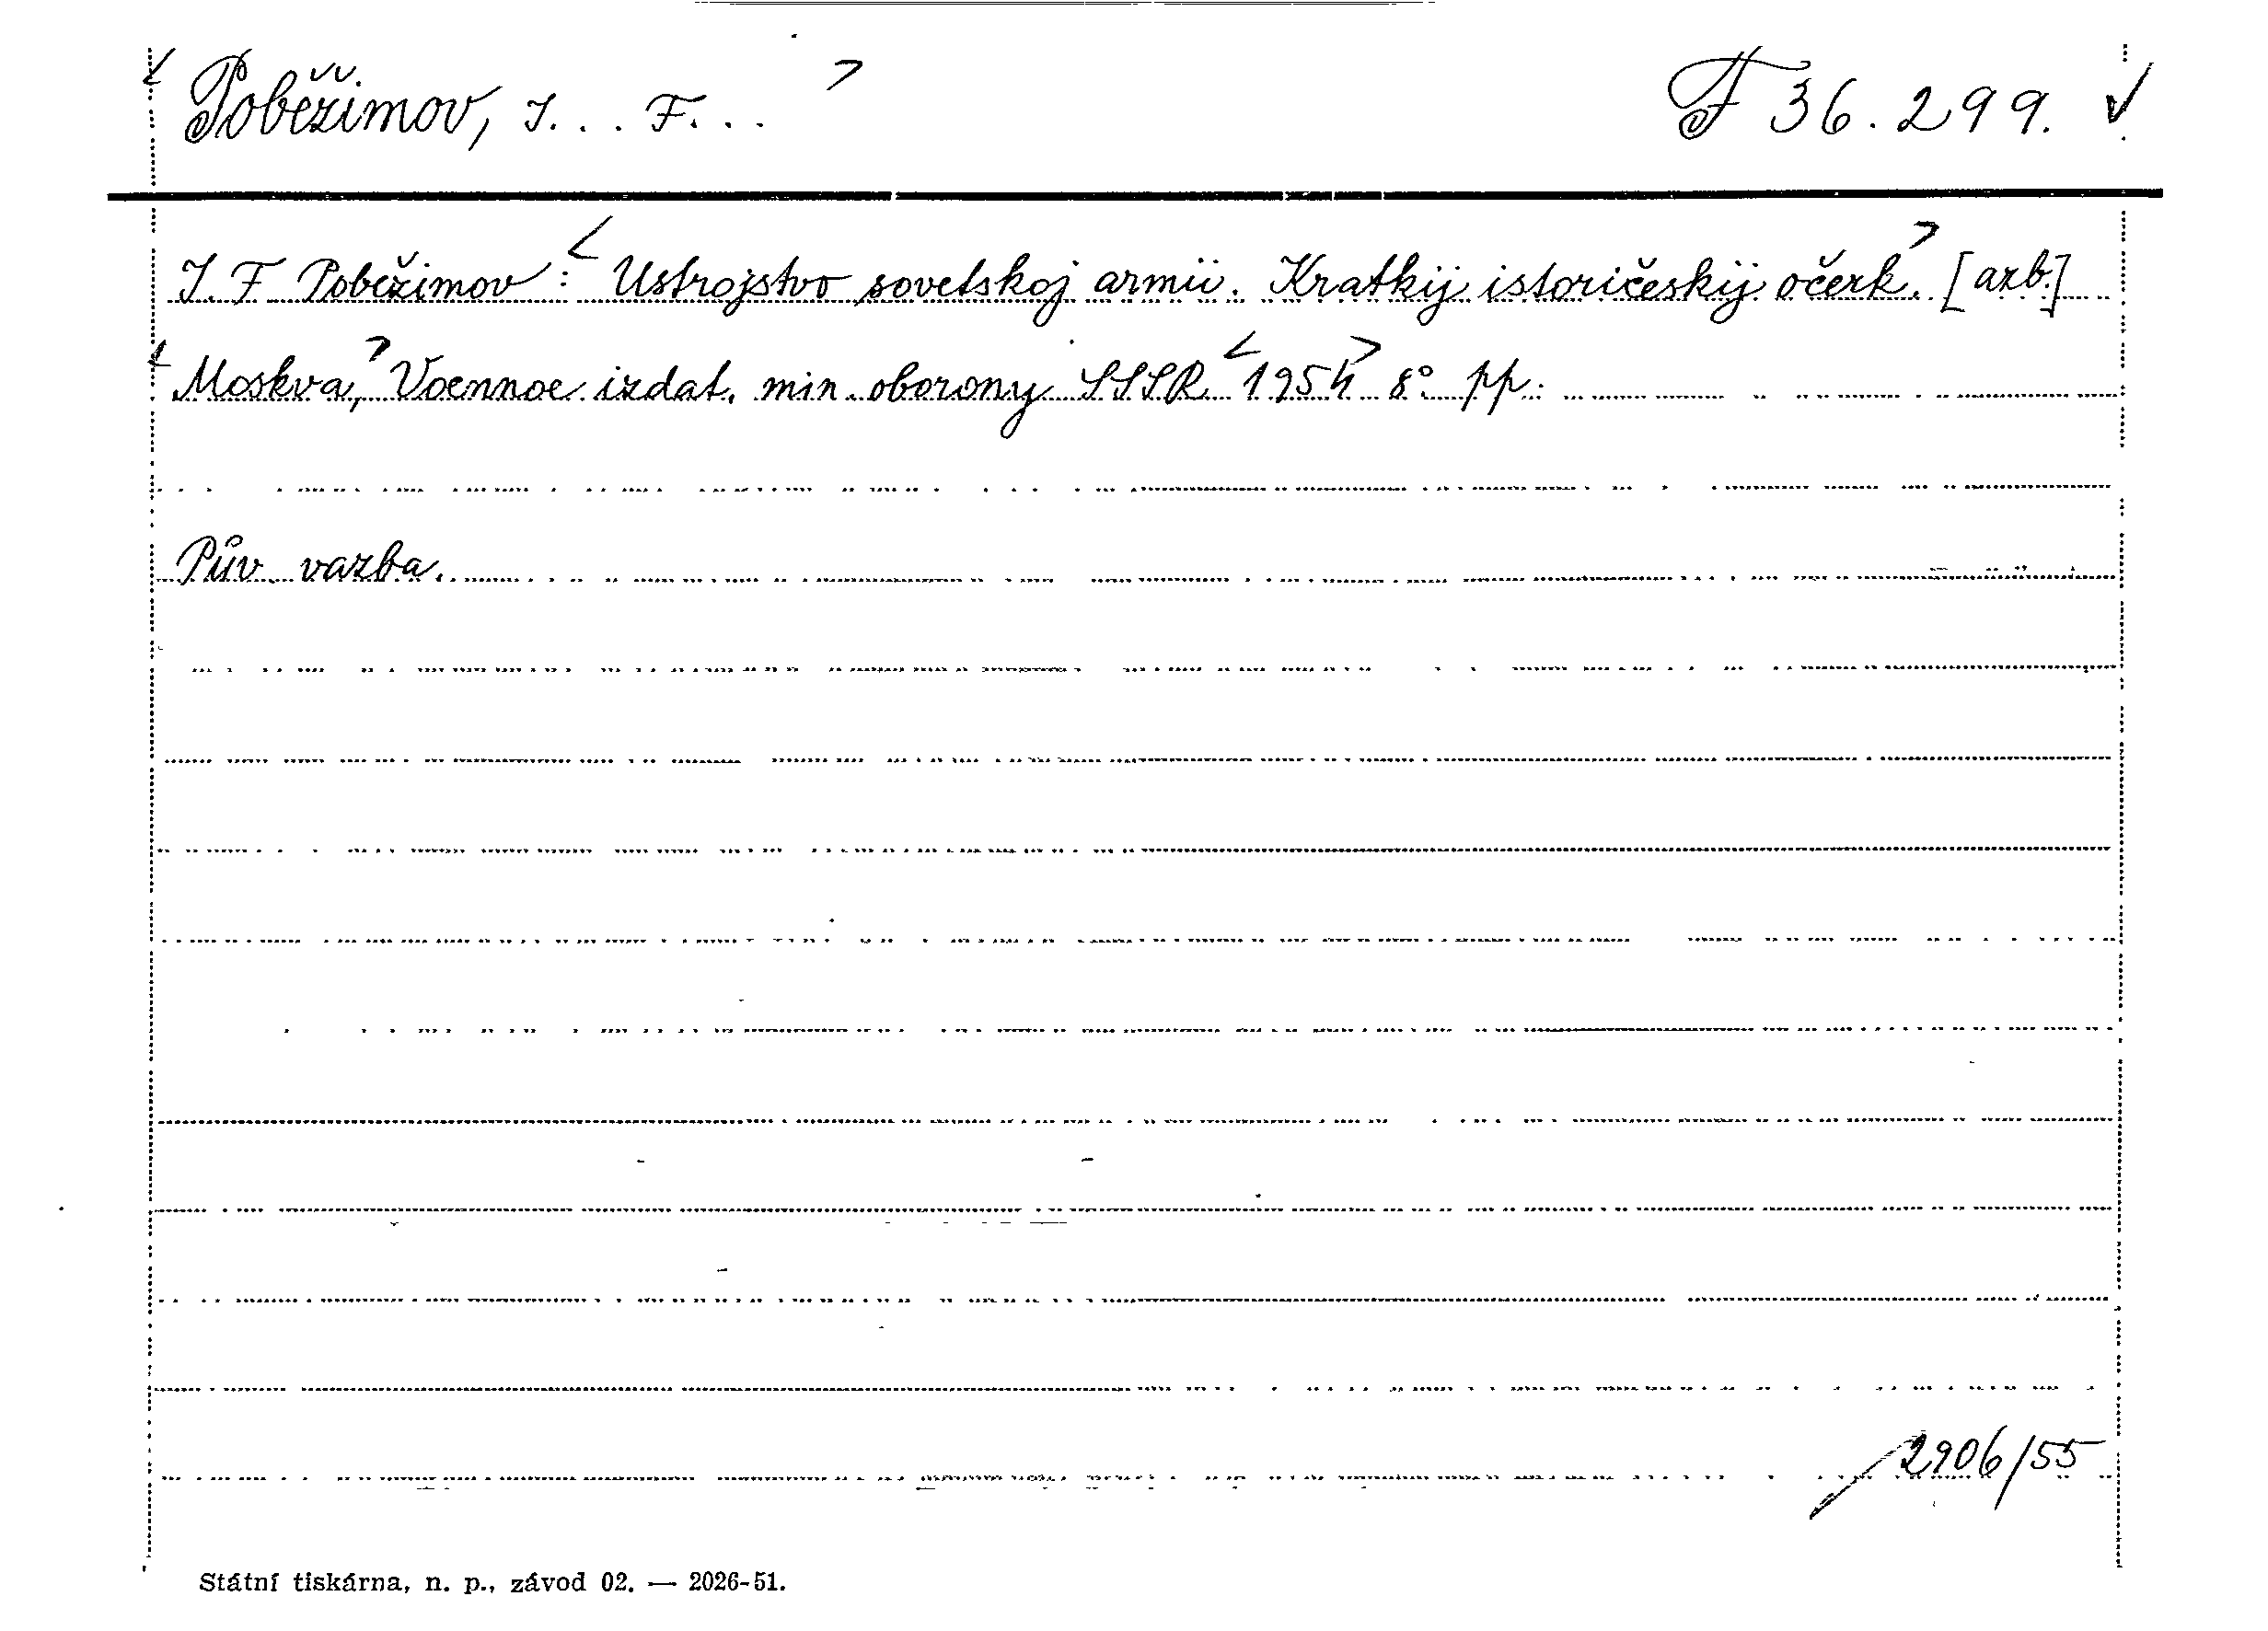 < Poběžimov, I... F... > F 36.299. ✓
I. F. Poběžimov: < Ustrojstvo sovetskoj armii. Kratkij istoričeskij očerk. > [azb.]
< Moskva, > Voennoe izdat. min. oborony SSSR < 1954 > 8° pp.
Pův. vazba.
2906/55
Státní tiskárna, n. p., závod 02. — 2026-51.